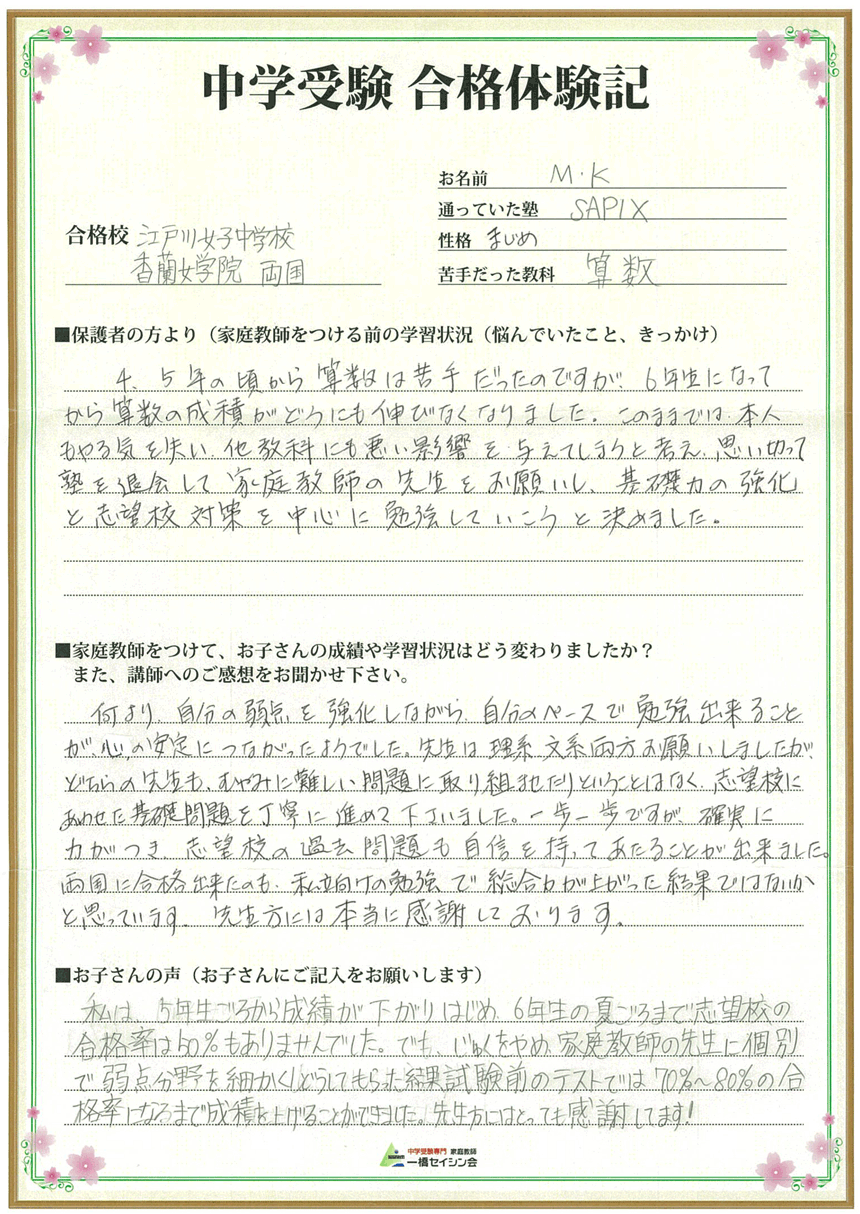 中学受験 合格体験記
お名前 M・K
通っていた塾 SAPIX
性格 まじめ
苦手だった教科 算数
合格校 江戸川女子中学校
香蘭女学院 両国
■保護者の方より（家庭教師をつける前の学習状況（悩んでいたこと、きっかけ）
4、5年の頃から算数は苦手だったのですが、6年生になって
から算数の成積がどうにも伸びなくなりました。このままでは、本人
もやる気を失い、他教科にも悪い影響を与えてしまうと考え、思い切って
塾を退会して家庭教師の先生をお願いし、基礎力の強化
と志望校対策を中心に勉強していこうと決めました。
■家庭教師をつけて、お子さんの成績や学習状況はどう変わりましたか？
また、講師へのご感想をお聞かせ下さい。
何より、自分の弱点を強化しながら、自分のペースで勉強出来ること
が、心の安定につながったようでした。先生は理系、文系両方お願いしましたが、
どちらの先生も、むやみに難しい問題に取り組ませたりということはなく、志望校に
あわせた基礎問題を丁寧に進めて下さいました。一歩一歩ですが、確実に
力がつき、志望校の過去問題も自信を持ってあたることが出来ました。
両国に合格出来たのも、私立向けの勉強で総合力が上がった結果ではないか
と思っています。先生方には本当に感謝しております。
■お子さんの声（お子さんにご記入をお願いします）
私は、5年生ごろから成績が下がりはじめ、6年生の夏ごろまで志望校の
合格率は50%もありませんでした。でも、じゅくをやめ、家庭教師の先生に個別
で弱点分野を細かくしどうしてもらった結果試験前のテストでは70%〜80%の合
格率になるまで成積を上げることができました。先生方にはとっても感謝してます！
中学受験専門 家庭教師
一橋セイシン会